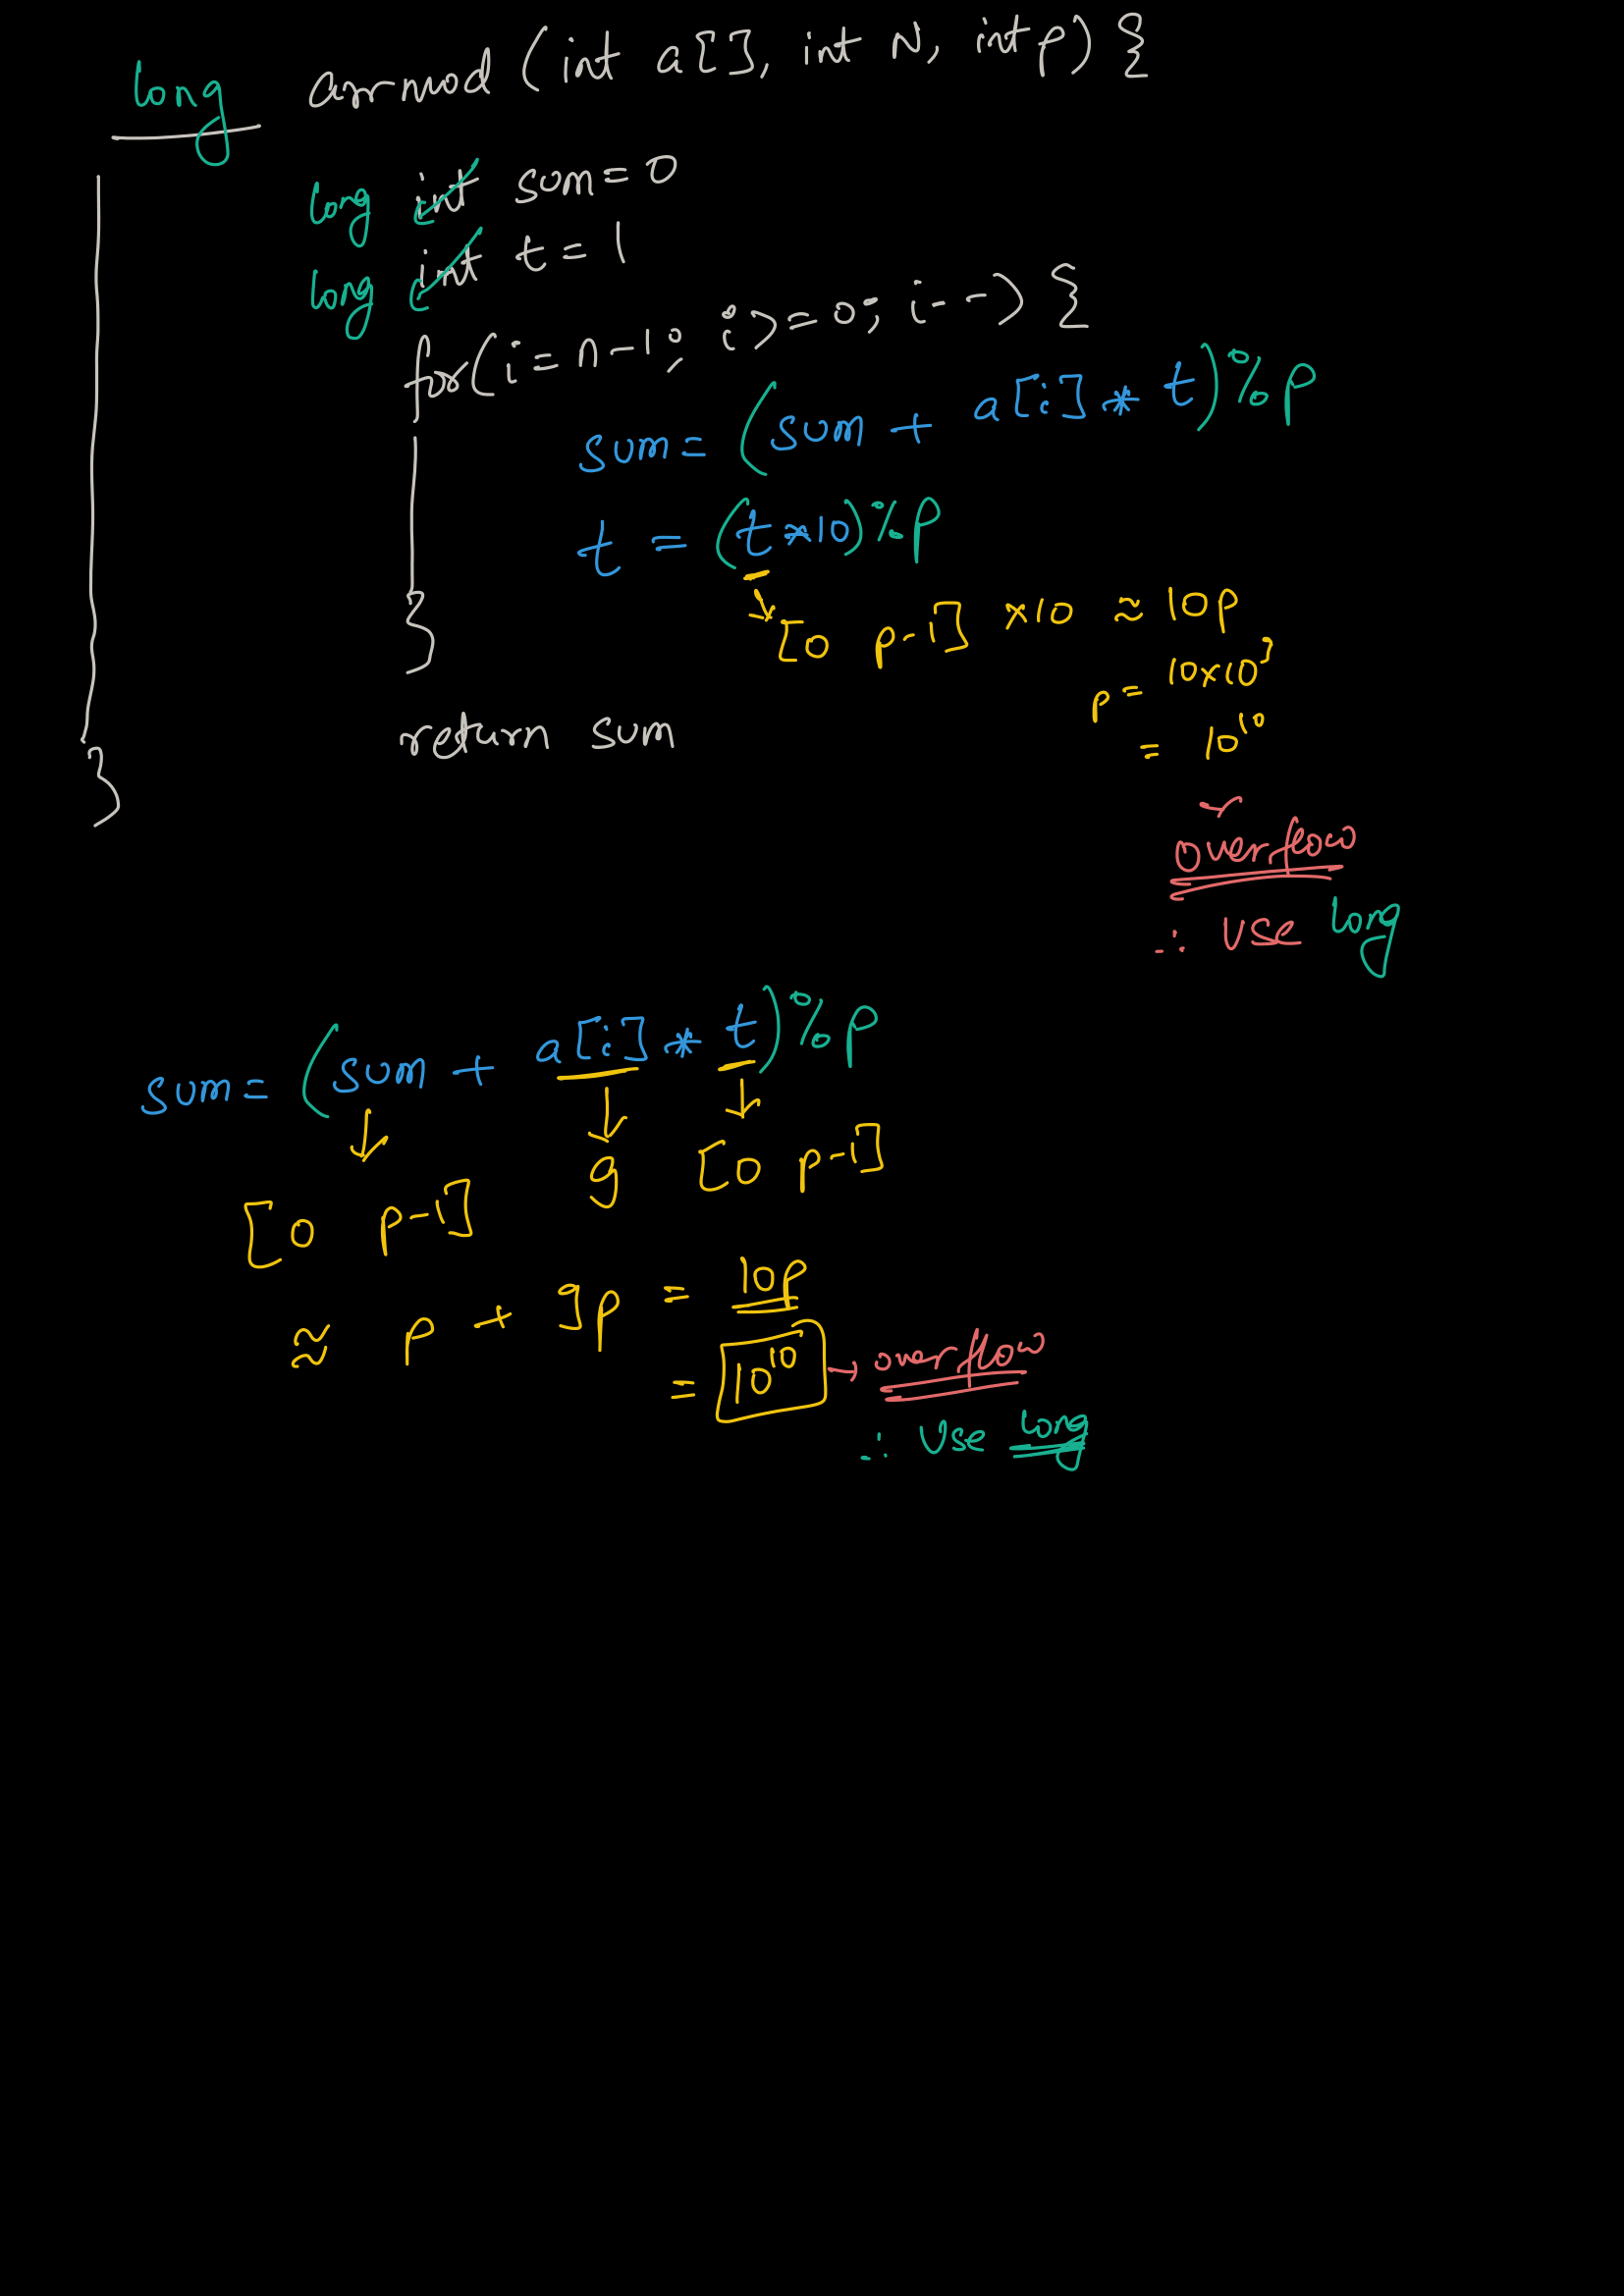 long arrmod (int a[], int N, int p) {
long int sum = 0
long int t = 1
for(i = n-1; i>=0; i--) {
sum = (sum + a[i] * t)%p
t = (t*10)%p
[0 p-1] ×10 ≈ 10p
}
p = 10×10⁹
return sum
= 10¹⁰
}
overflow
∴ use long
sum = (sum + a[i] * t)%p
[0 p-1] 9 [0 p-1]
≈ p + 9p = 10p
= 10¹⁰ → overflow
∴ Use long